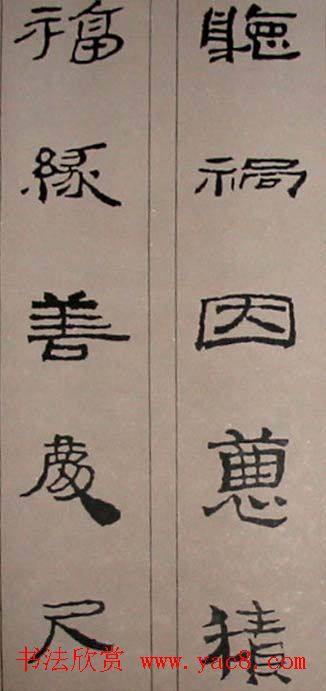 聽禍因惡積
福緣善慶尺
书法欣赏 www.yac8.com